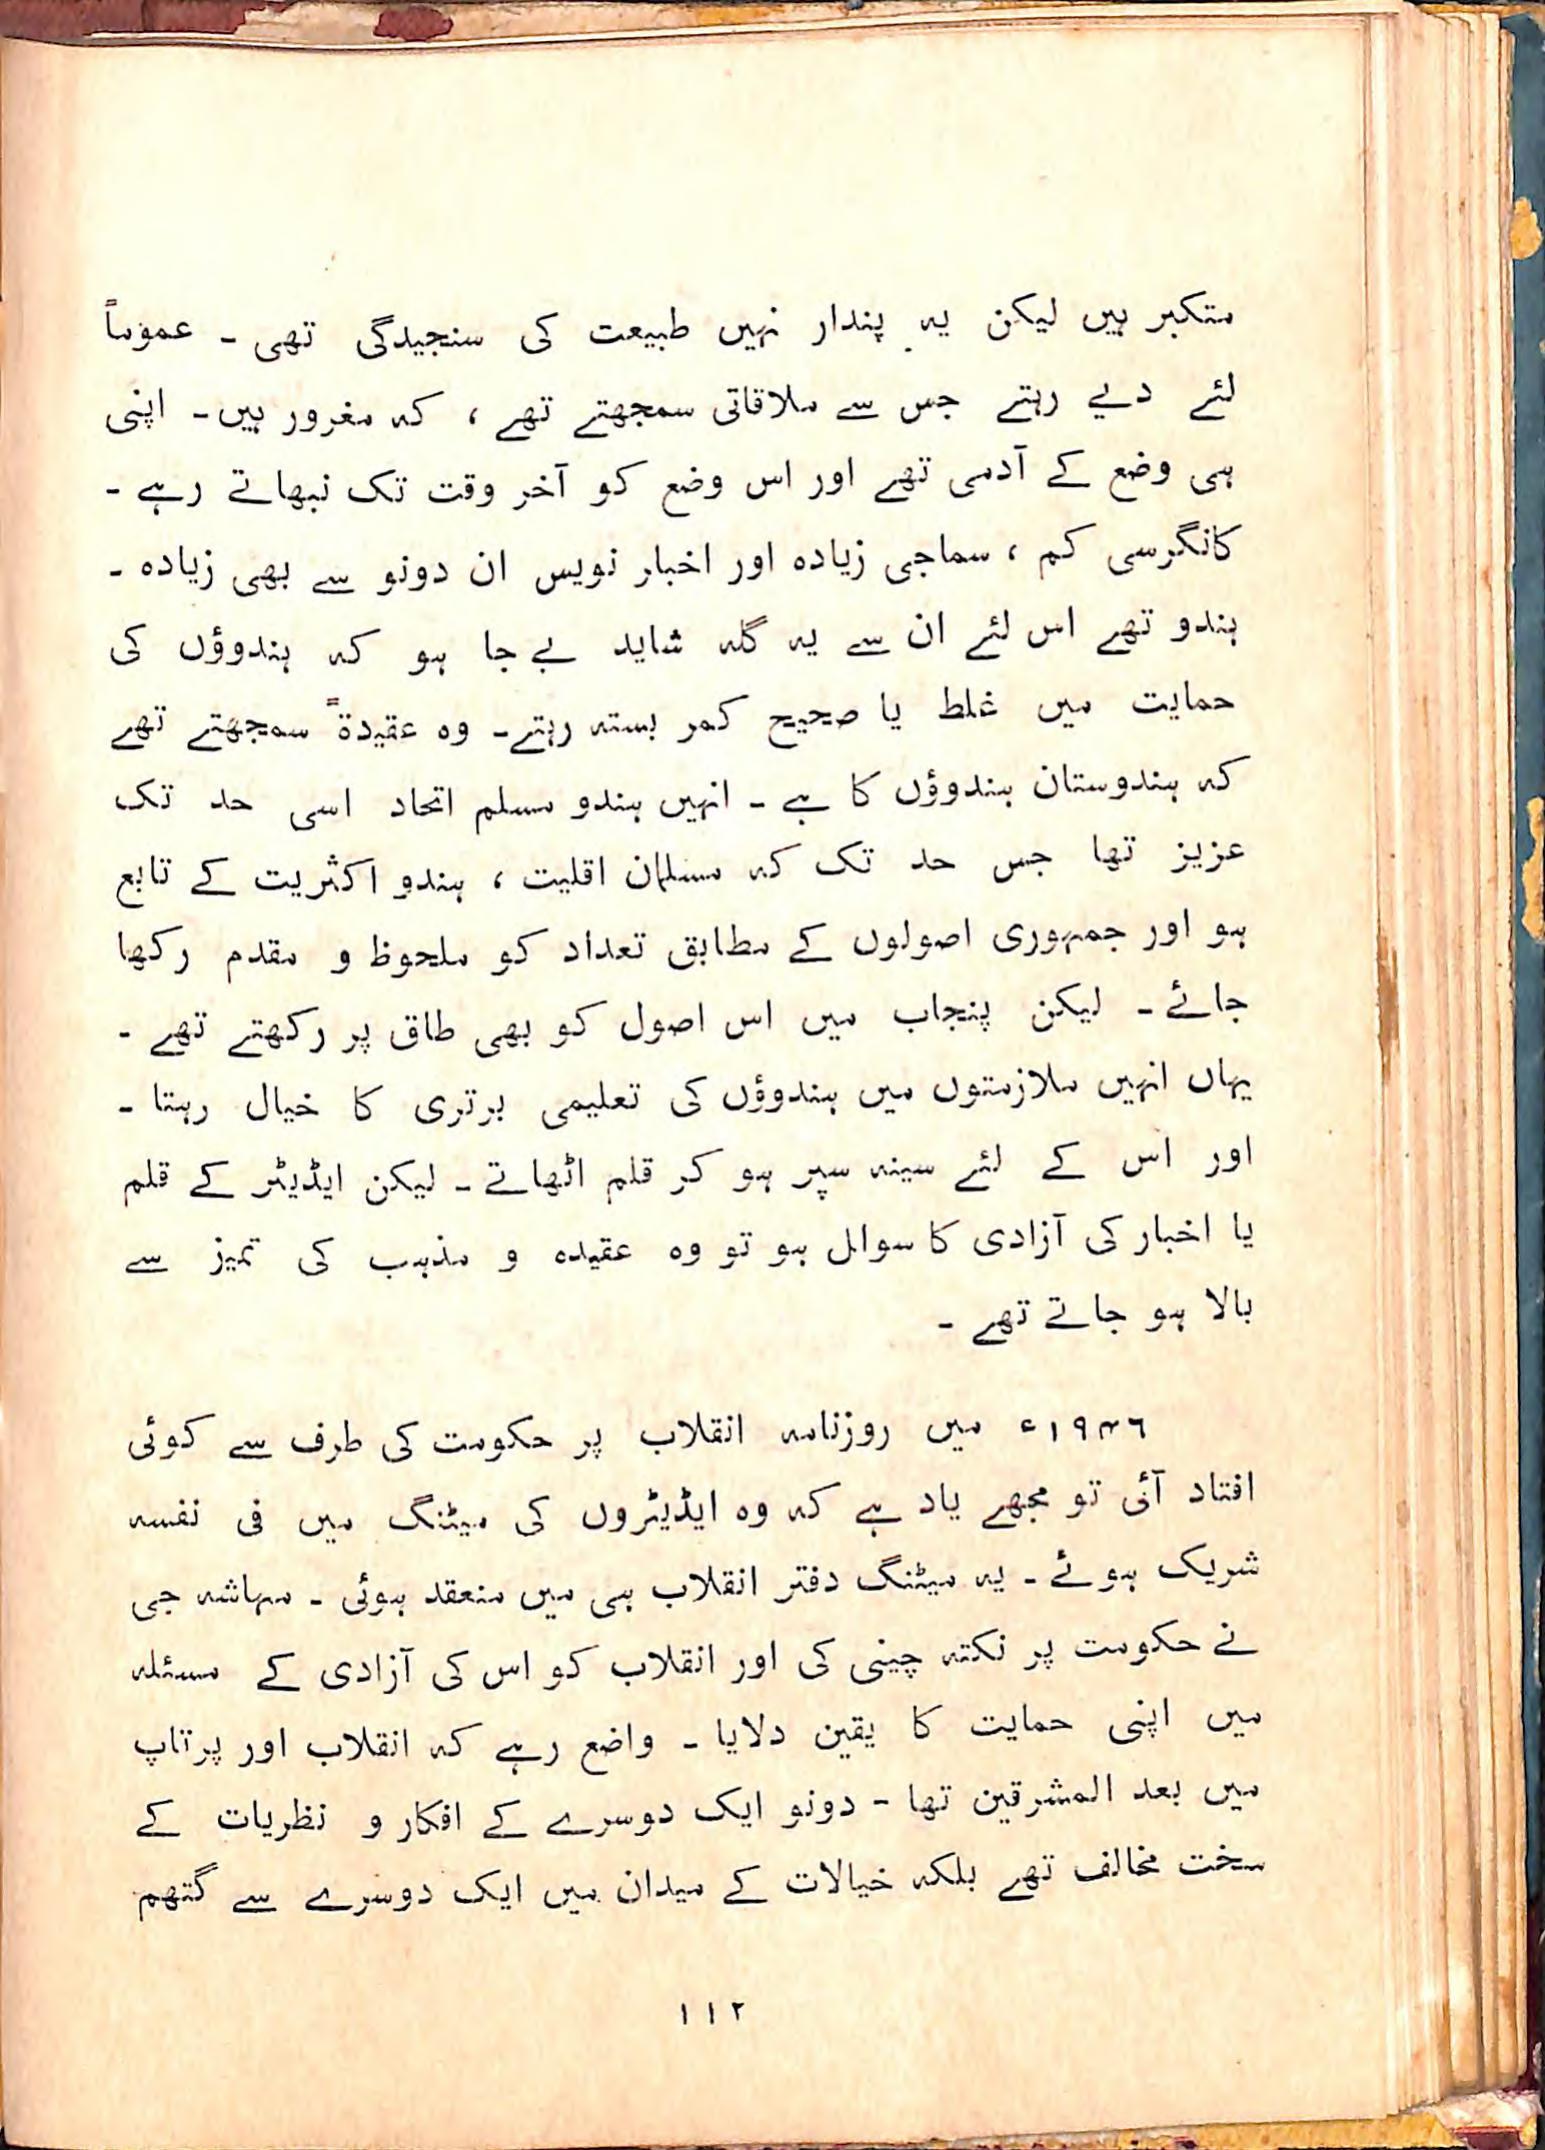 متکبر ہیں لیکن یہ پندار نہیں طبیعت کی سنجیدگی تھی ۔ عموماً
لئے دیے رہتے جس سے ملاقاتی سمجھتے تھے ، کہ مغرور ہیں۔ اپنی
ہی وضع کے آدمی تھے اور اس وضع کو آخر وقت تک نبھاتے رہے ۔
کانگرسی کم ، سماجی زیادہ اور اخبار نویس ان دونو سے بھی زیادہ ۔
ہندو تھے اس لئے ان سے یہ گلہ شاید بے جا ہو کہ ہندوؤں کی
حمایت میں غلط یا صحیح کمر بستہ رہتے۔ وہ عقیدۃً سمجھتے تھے
کہ ہندوستان ہندوؤں کا ہے ۔ انہیں ہندو مسلم اتحاد اسی حد تک
عزیز تھا جس حد تک کہ مسلمان اقلیت ، ہندو اکثریت کے تابع
ہو اور جمہوری اصولوں کے مطابق تعداد کو ملحوظ و مقدم رکھا
جائے ۔ لیکن پنجاب میں اس اصول کو بھی طاق پر رکھتے تھے ۔
یہاں انہیں ملازمتوں میں ہندوؤں کی تعلیمی برتری کا خیال رہتا ۔
اور اس کے لئے سینہ سپر ہو کر قلم اٹھاتے ۔ لیکن ایڈیٹر کے قلم
یا اخبار کی آزادی کا سوال ہو تو وہ عقیدہ و مذہب کی تمیز سے
بالا ہو جاتے تھے ۔
۱۹۴٦ء میں روزنامہ انقلاب پر حکومت کی طرف سے کوئی
افتاد آئی تو مجھے یاد ہے کہ وہ ایڈیٹروں کی میٹنگ میں فی نفسہ
شریک ہوئے ۔ یہ میٹنگ دفتر انقلاب ہی میں منعقد ہوئی ۔ مہاشہ جی
نے حکومت پر نکتہ چینی کی اور انقلاب کو اس کی آزادی کے مسئلہ
میں اپنی حمایت کا یقین دلایا ۔ واضع رہے کہ انقلاب اور پرتاپ
میں بعد المشرقین تھا ۔ دونو ایک دوسرے کے افکار و نظریات کے
سخت مخالف تھے بلکہ خیالات کے میدان میں ایک دوسرے سے گتھم
۱۱۲